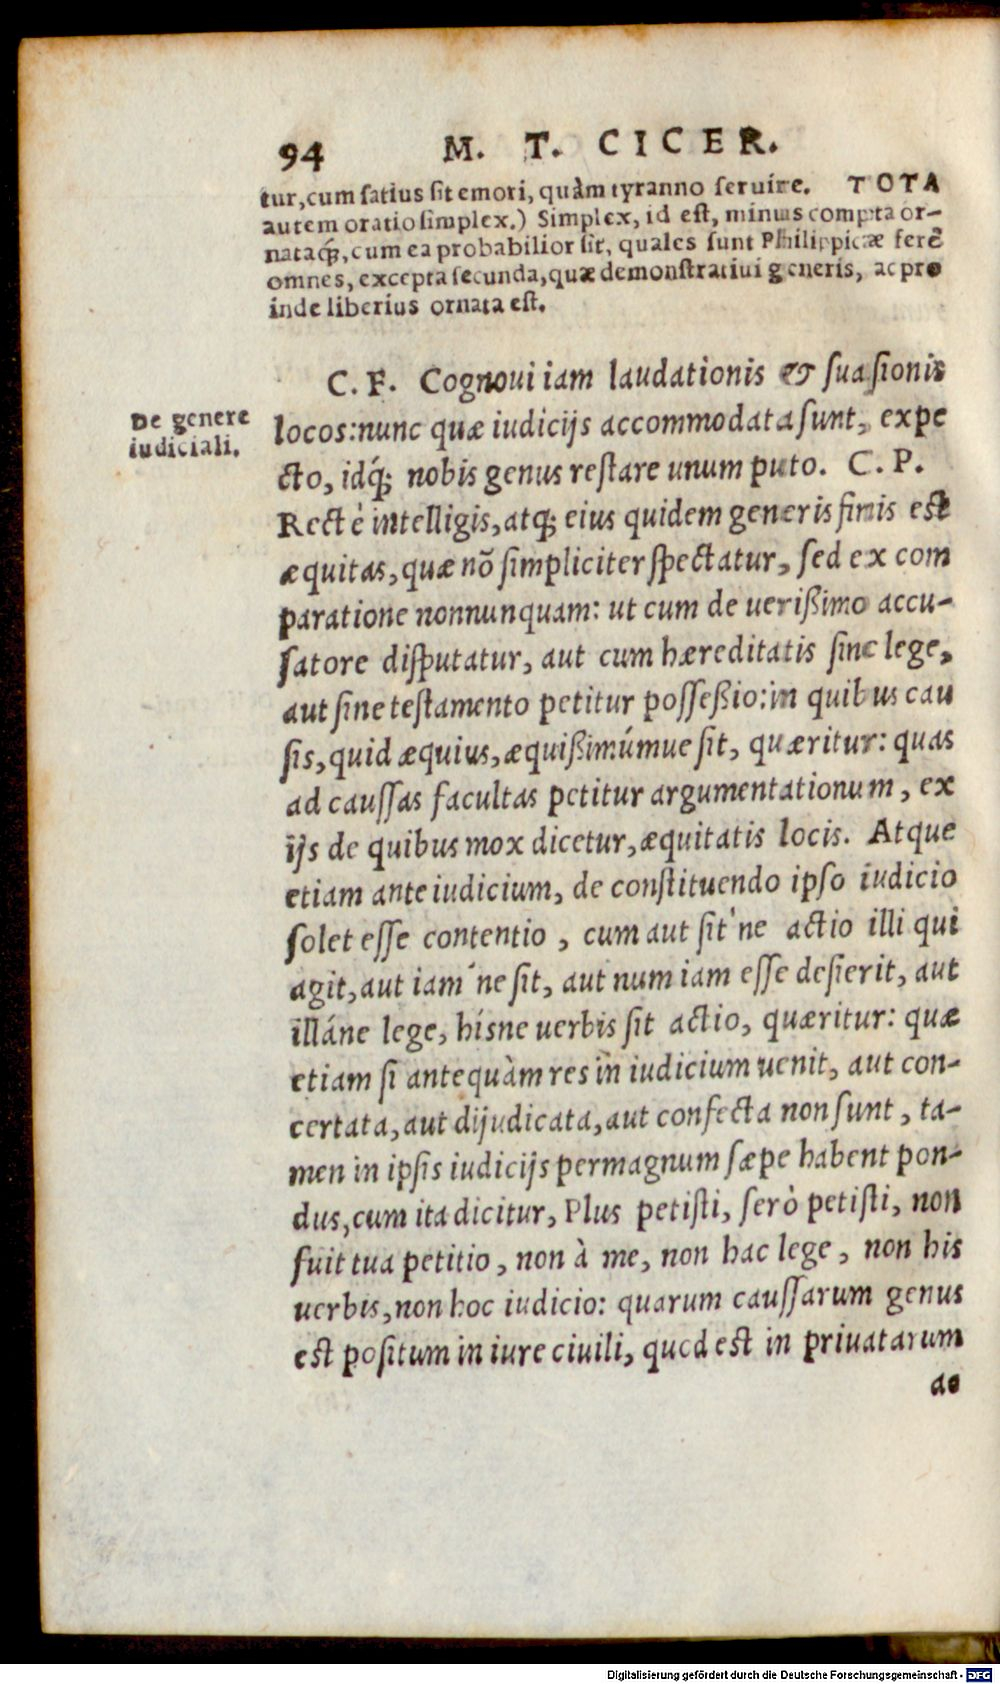 94 M. T. CICER.
tur, cum satius sit emori, quàm tyranno seruire. TOTA
autem oratio simplex.) Simplex, id est, minus compta or-
nataq́;, cum ea probabilior sit, quales sunt Philippicæ ferè
omnes, excepta secunda, quæ demonstratiui generis, ac pro
inde liberius ornata est.
C. F. Cognoui iam laudationis & suasionis
De genere
iudiciali.
locos: nunc quæ iudicijs accommodata sunt, expe
cto, idq́; nobis genus restare unum puto. C. P.
Rectè intelligis, atq; eius quidem generis finis est
æquitas, quæ nõ simpliciter spectatur, sed ex com
paratione nonnunquam: ut cum de uerißimo accu-
satore disputatur, aut cum hæreditatis sine lege,
aut sine testamento petitur possessio: in quibus cau
sis, quid æquius, æquißimúmue sit, quæritur: quas
ad caussas facultas petitur argumentationum, ex
ijs de quibus mox dicetur, æquitatis locis. Atque
etiam ante iudicium, de constituendo ipso iudicio
solet esse contentio, cum aut sit'ne actio illi qui
agit, aut iam'ne sit, aut num iam esse desierit, aut
illáne lege, hísne uerbis sit actio, quæritur: quæ
etiam si antequàm res in iudicium uenit, aut con-
certata, aut dijudicata, aut confecta non sunt, ta-
men in ipsis iudicijs permagnum sæpe habent pon-
dus, cum ita dicitur, Plus petisti, serò petisti, non
fuit tua petitio, non à me, non hac lege, non his
uerbis, non hoc iudicio: quarum caussarum genus
est positum in iure ciuili, quod est in priuatarum
ac
Digitalisierung gefördert durch die Deutsche Forschungsgemeinschaft - DFG